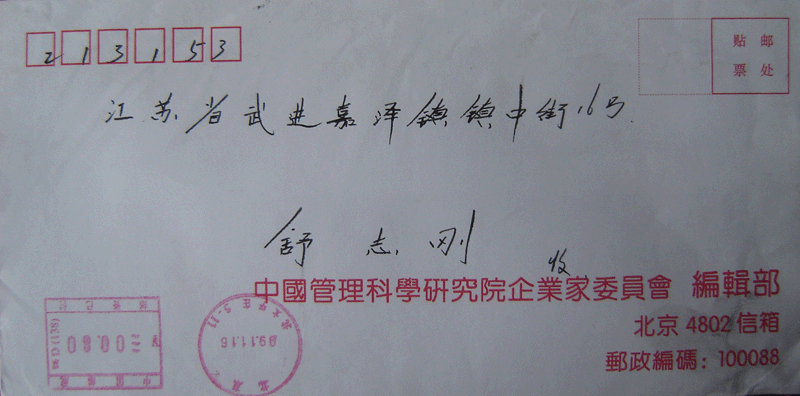 213153
贴邮
票处
江苏省武进嘉泽镇镇中街16号
舒志刚 收
中國管理科學研究院企業家委員會 編輯部
北京 4802 信箱
郵政編碼：100088
00.80
99.11.16